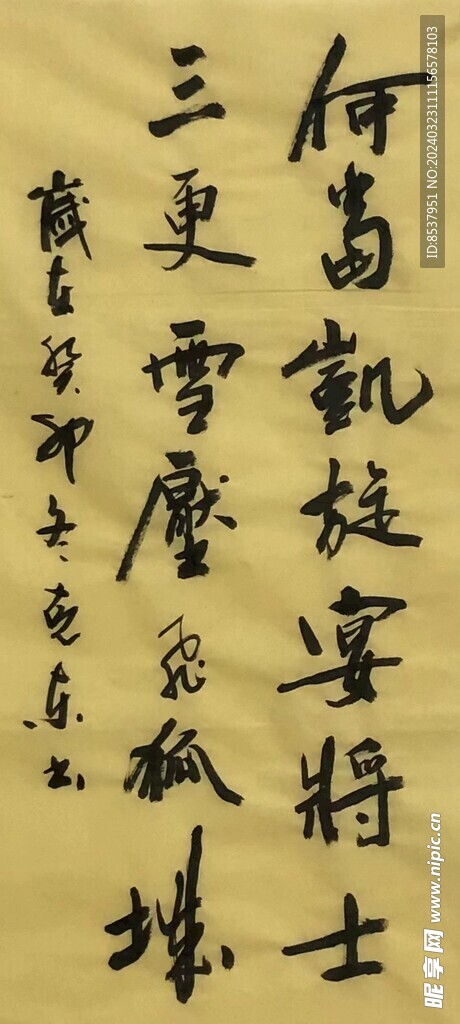 何當凱旋宴將士
三更雪壓飛狐城
歲在癸卯冬克東书
ID:8537951 NO:20240323111156578103
昵享网 www.nipic.cn